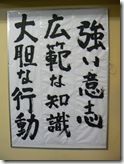 強い意志
広範な知識
大胆な行動